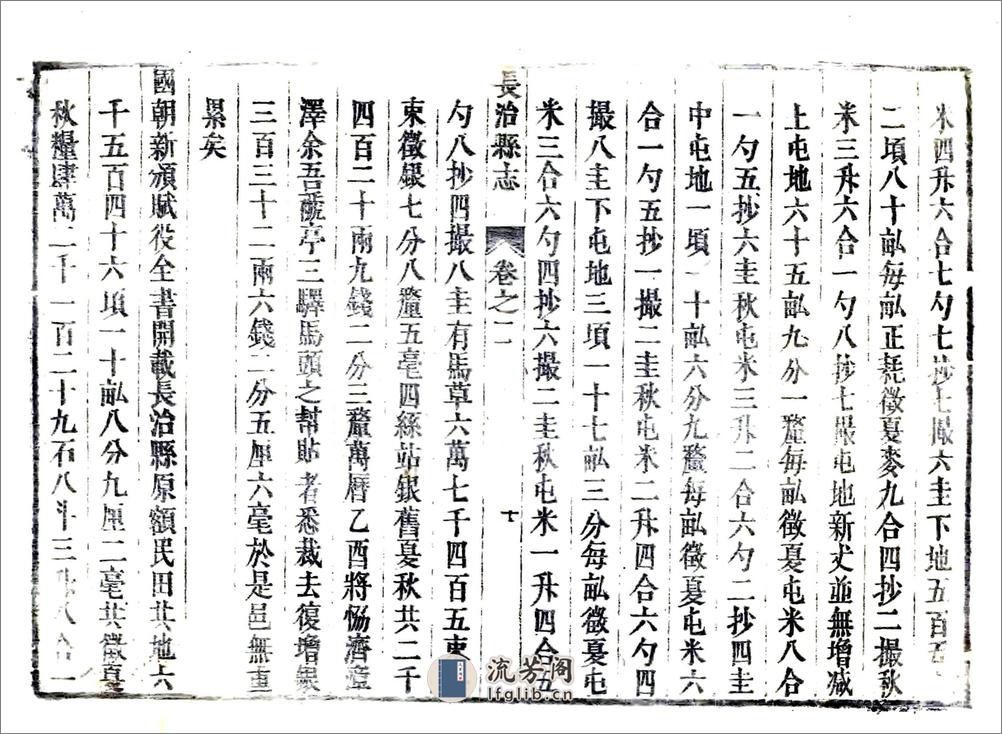 米四升六合七勺七抄七撮六圭下地五百五
二頃八十畝每畝正耗徵夏麥九合四抄二撮秋
米三升六合一勺八抄七撮屯地新丈並無增減
上屯地六十五畝九分一釐每畝徵夏屯米八合
一勺五抄六圭秋屯米三升二合六勺二抄四圭
中屯地一頃一十畝六分九釐每畝徵夏屯米六
合一勺五抄一撮二圭秋屯米二升四合六勺四
撮八圭下屯地三頃一十七畝三分每畝徵夏屯
米三合六勺四抄六撮二圭秋屯米一升四合五
長治縣志
卷之二
十
勺八抄四撮八圭有馬草六萬七千四百五束
束徵銀七分八釐五毫四絲站銀舊夏秋共二千
四百二十兩九錢二分三釐萬曆乙酉將協濟
澤余吾虒亭三驛馬頭之幇貼者悉裁去復增銀
三百三十二兩六錢二分五厘六毫於是邑無重
累矣
國朝新頒賦役全書開載長治縣原額民田共地六
千五百四十六頃一十畝八分九厘二毫共徵夏
秋糧肆萬二千一百二十九石八斗三升八合一
流芳阁
lfglib.cn